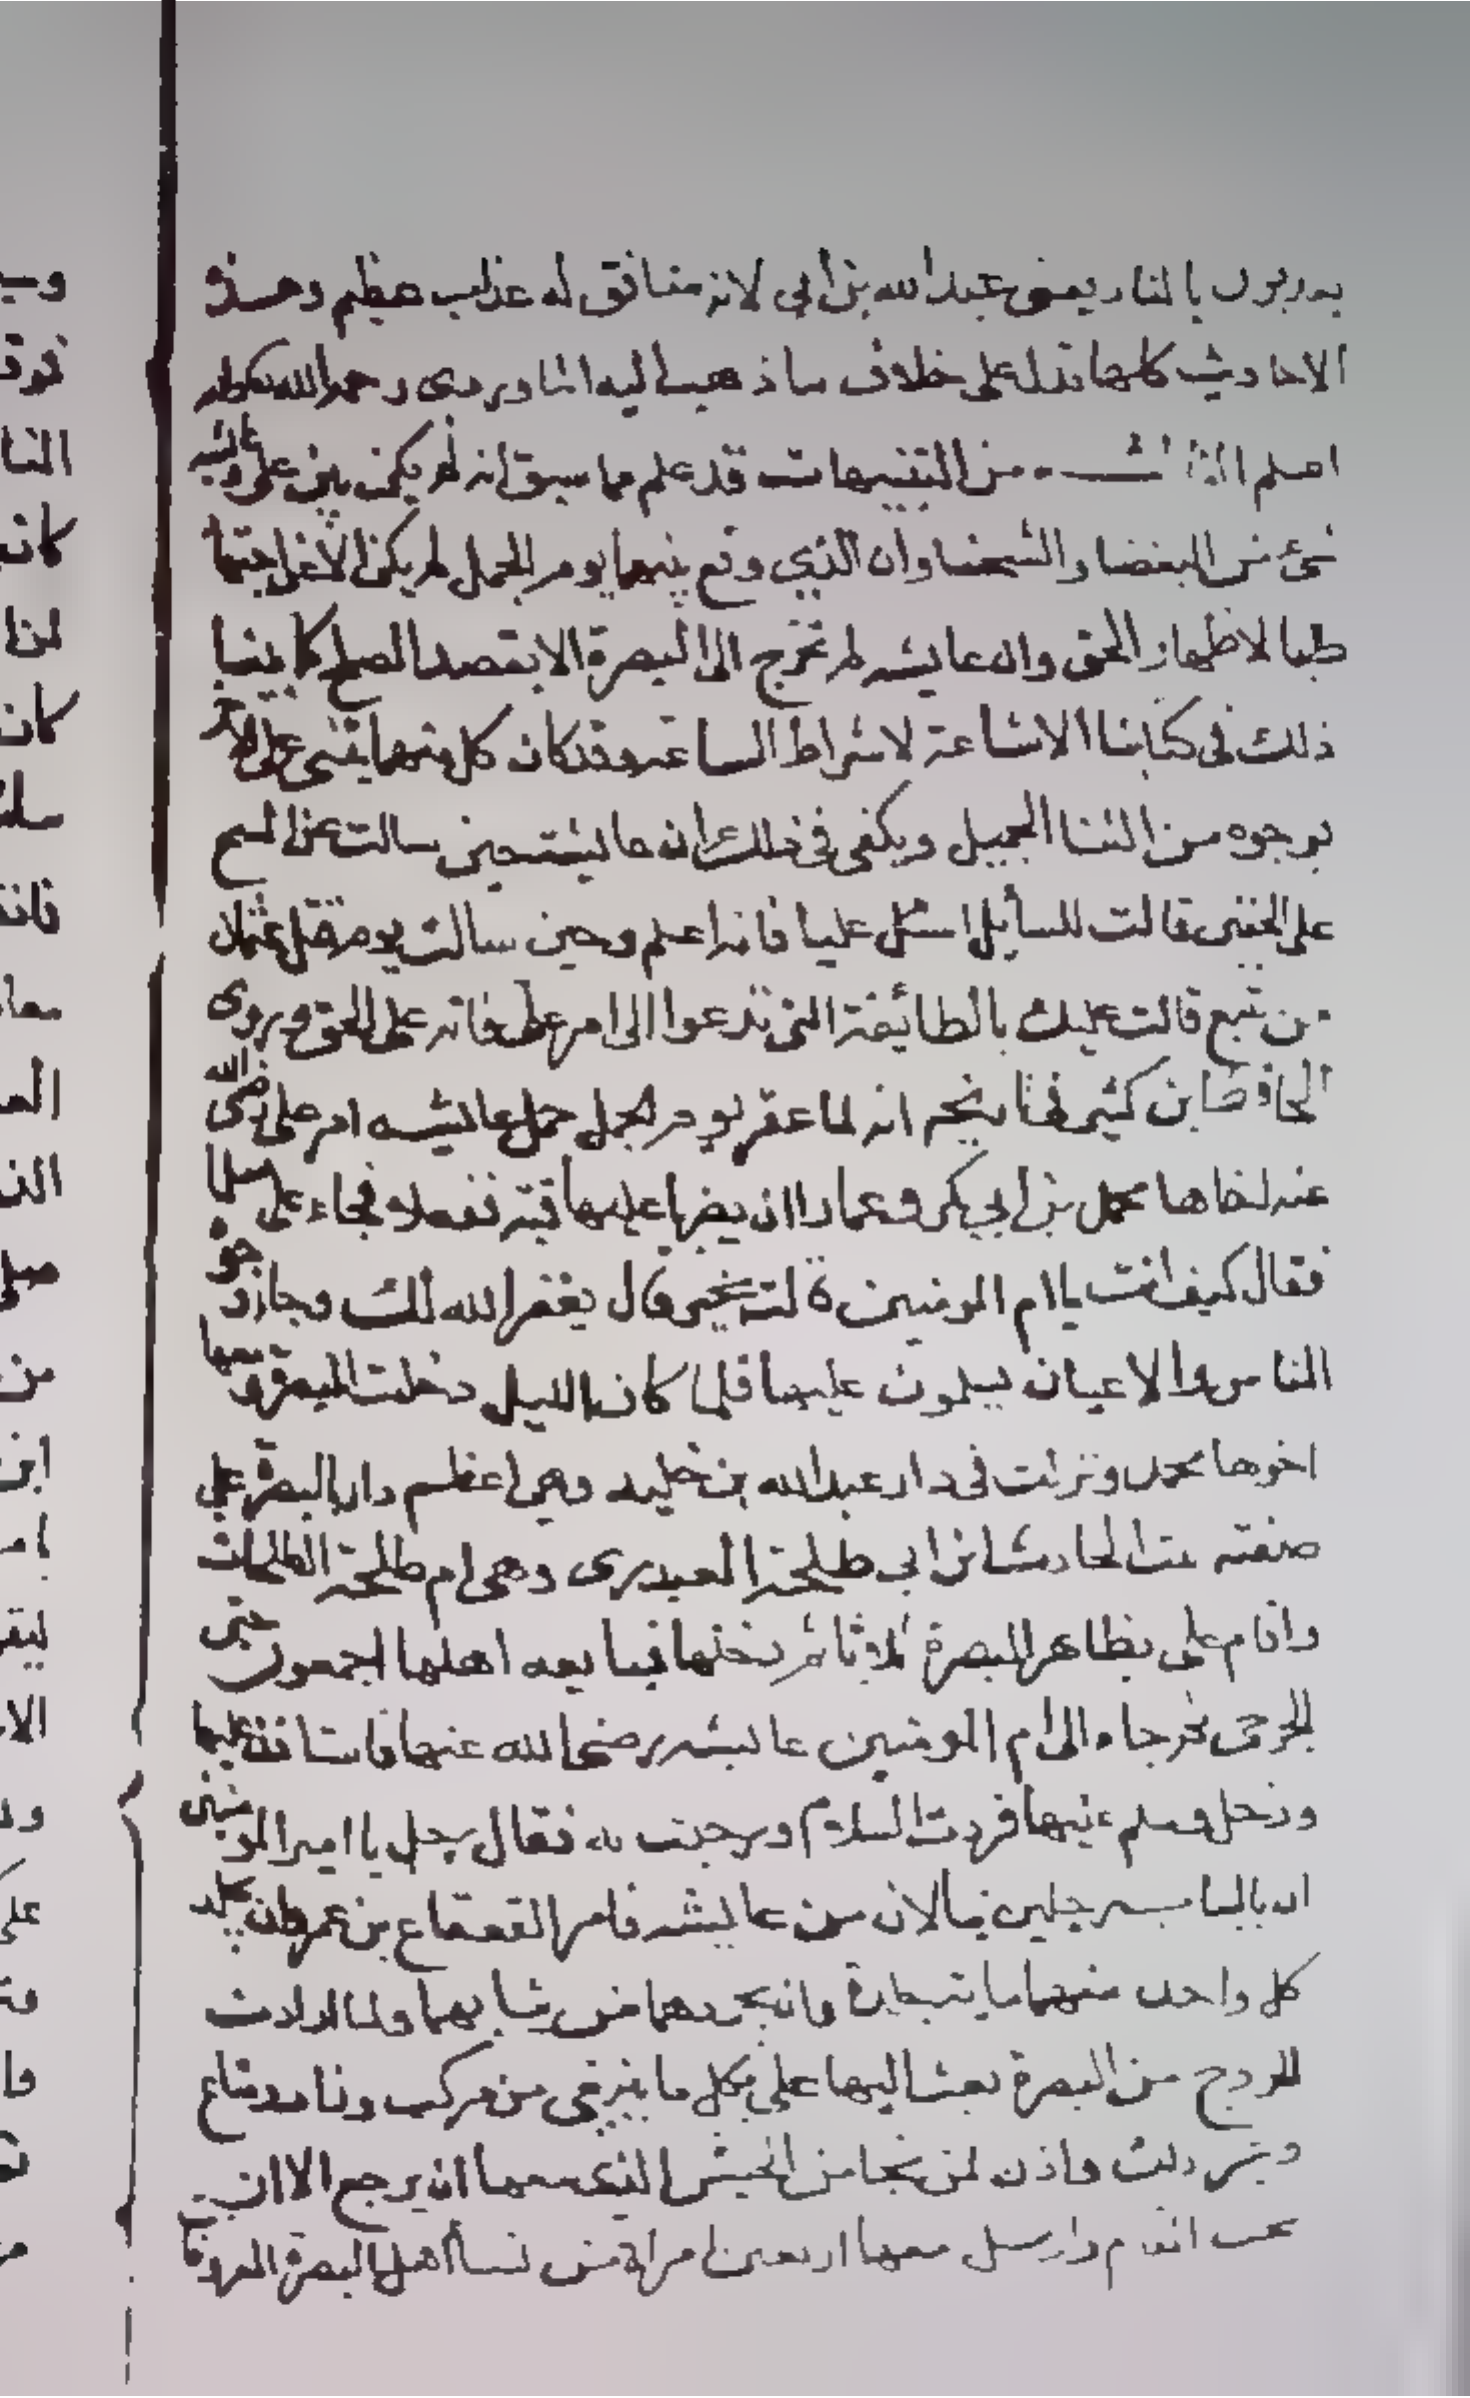 بالنار يعنى عبد الله بن ابي لانه منافق له عذاب عظيم وهذه
الاحاديث كلها تدل على خلاف ما ذهب اليه الماوردى رحمه الله
اعلم الثالث من التنبيهات قد علم مما سبق انه لم يكن بين على وعائشه
شئ من البغضا والشحنا وان الذي وقع بينهما يوم الجمل لم يكن الا عن اجتها
طبا لاظهار الحق وان عايشه لم تخرج الى البصرة الا بقصد الصلح كما بينا
ذلك في كتابنا الاشاعة لاشراط الساعة وقد كان كل منهما يثنى على الاخر
بوجوه من الثنا الجميل ويكفى في ذلك ان عايشة حين سالت عن المسح
على الخفين قالت للسأيل اسئل عليا فانه اعلم وحين سالت يوم قتل عثمان
من تتبع قالت عليك بالطائفة التى تدعوا الى امر على فانه على الحق وروى
الحافظ ابن كثير في انه لما عقر يوم الجمل جمل عايشه امر على رضى الله
عنه اخاها محمد بن ابي بكر وعمارا ان يضربا عليها قبة ففعلا وجاء على مسلما
فقال كيف انت يا ام المومنين قالت بخير قال يغفر الله لك وجاء وجوه
الناس والاعيان يسلمون عليها فلما كان الليل دخلت البصرة ومعها
اخوها محمد ونزلت فى دار عبد الله بن خليد وهي اعظم دار بالبصرة على
صفية بنت الحارث ابن ابي طلحة العبدرى وهى ام طلحة الطلحات
واقام على بظاهر البصرة ثلاثا ثم دخلها فبايعه اهلها اجمعون حتى
الجرحى ثم جاء الى ام المومنين عايشه رضى الله عنها فاستاذن عليها
ودخل وسلم عليها فردت السلام ورحبت به فقال رجل يا امير المومنين
ان بالباب رجلين ينالان من عايشه فامر القعقاع بن عمر فان يجلد
كل واحد منهما ماية جلدة وان يجردهما من ثيابهما ولما ارادت
الخروج من البصرة بعث اليها على بكل ما ينبغى من مركب وزاد ومتاع
وغير ذلك واذن لمن نجا من الجيش الذى معها ان يرجع الا ان
يحب المقام وارسل معها اربعين امراة من نسأ اهل البصرة المعروفا